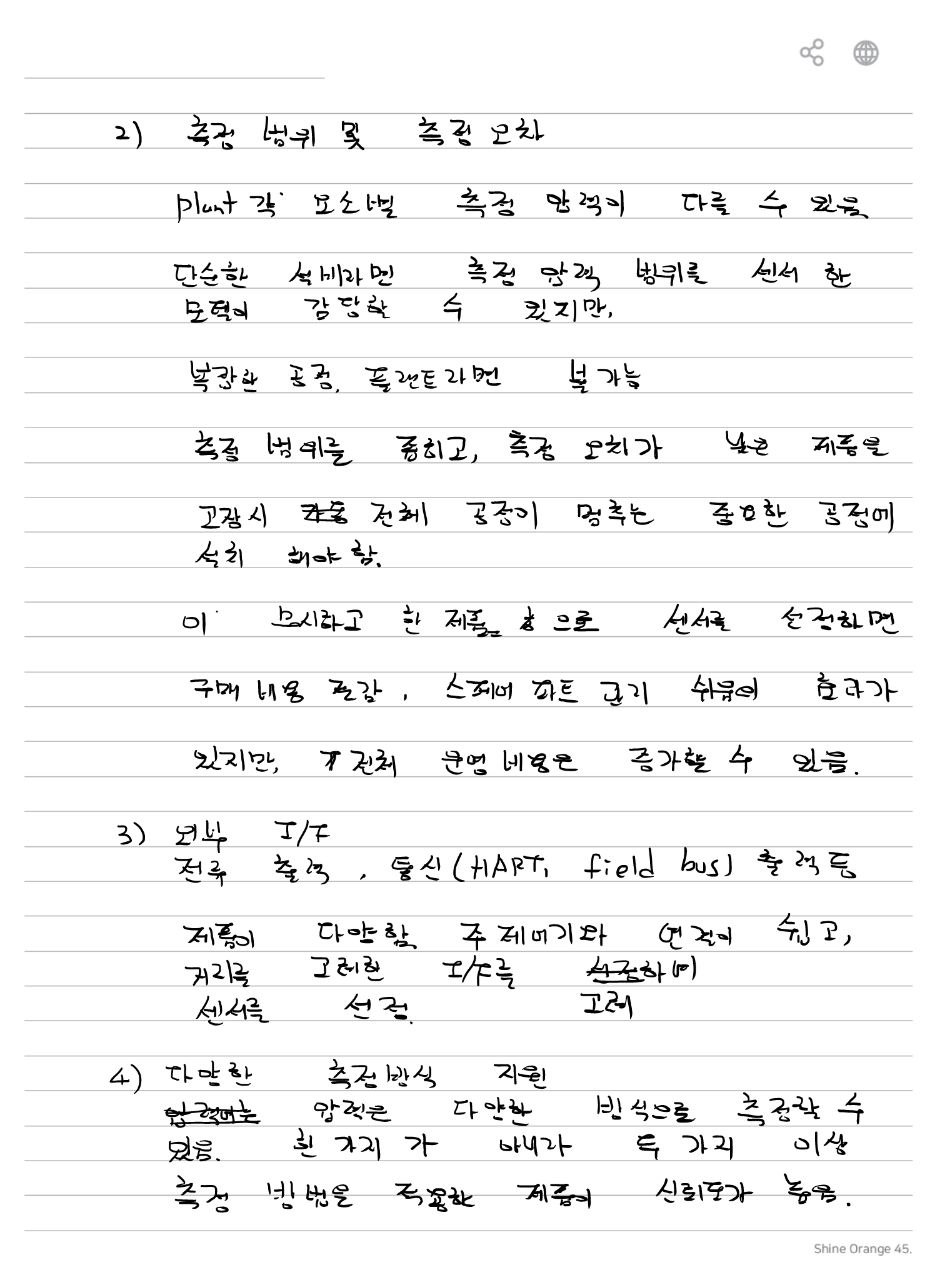 2) 측정 범위 및 측정 오차
plant 각 요소별 측정 압력이 다를 수 있음
단순한 설비라면 측정 압력 범위를 센서 한
모델이 감당할 수 있지만,
복잡한 공정, 플랜트라면 불가능
측정 범위를 좁히고, 측정 오차가 낮은 제품을
고장시 전체 공정이 멈추는 중요한 공정에
설치 해야 함.
이 무시하고 한 제품 으로 센서를 선정하면
구매 비용 절감, 스페어 파트 관리 쉬움의 효과가
있지만, 전체 운영 비용은 증가할 수 있음.
3) 외부 I/F
전류 출력, 통신(HART, field bus) 출력 등
제품이 다양함 주 제어기와 연결이 쉽고,
거리를 고려한 I/F를 하여
센서를 선정. 고려
4) 다양한 측정방식 지원
압력은 다양한 방식으로 측정할 수
있음. 한 가지 가 아니라 두 가지 이상
측정 방법을 적용한 제품이 신뢰도가 높음.
Shine Orange 45.